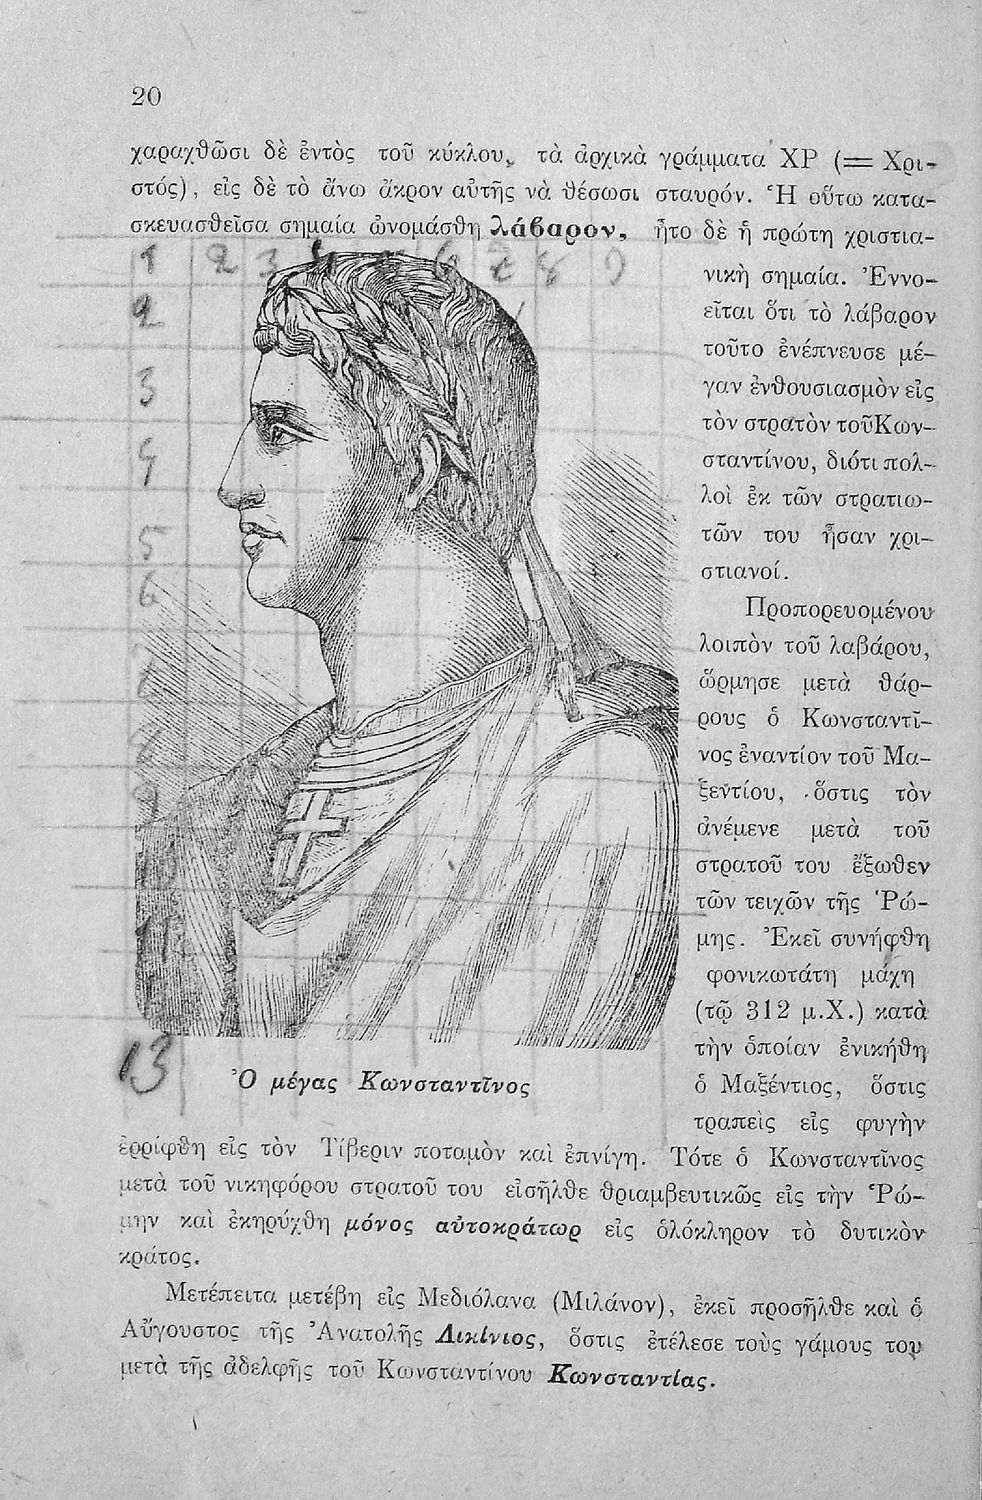 20
χαραχθῶσι δὲ ἐντὸς τοῦ κύκλου, τὰ ἀρχικὰ γράμματα ΧΡ (= Χρι-
στός), εἰς δὲ τὸ ἄνω ἄκρον αὐτῆς νὰ θέσωσι σταυρόν. Ἡ οὕτω κατα-
σκευασθεῖσα σημαία ὠνομάσθη λάβαρον, ἦτο δὲ ἡ πρώτη χριστια-
1 2 3 4 5 6 7 8 9
2
3
4
5
6
7
8
9
13
νικὴ σημαία. Ἐννο-
εῖται ὅτι τὸ λάβαρον
τοῦτο ἐνέπνευσε μέ-
γαν ἐνθουσιασμὸν εἰς
τὸν στρατὸν τοῦ Κων-
σταντίνου, διότι πολ-
λοὶ ἐκ τῶν στρατιω-
τῶν του ἦσαν χρι-
στιανοί.
Προπορευομένου
λοιπὸν τοῦ λαβάρου,
ὥρμησε μετὰ θάρ-
ρους ὁ Κωνσταντῖ-
νος ἐναντίον τοῦ Μα-
ξεντίου, ὅστις τὸν
ἀνέμενε μετὰ τοῦ
στρατοῦ του ἔξωθεν
τῶν τειχῶν τῆς Ῥώ-
μης. Ἐκεῖ συνήφθη
φονικωτάτη μάχη
(τῷ 312 μ.Χ.) κατὰ
τὴν ὁποίαν ἐνικήθη
ὁ Μαξέντιος, ὅστις
τραπεὶς εἰς φυγὴν
Ὁ μέγας Κωνσταντῖνος
ἐρρίφθη εἰς τὸν Τίβεριν ποταμὸν καὶ ἐπνίγη. Τότε ὁ Κωνσταντῖνος
μετὰ τοῦ νικηφόρου στρατοῦ του εἰσῆλθε θριαμβευτικῶς εἰς τὴν Ῥώ-
μην καὶ ἐκηρύχθη μόνος αὐτοκράτωρ εἰς ὁλόκληρον τὸ δυτικὸν
κράτος.
Μετέπειτα μετέβη εἰς Μεδιόλανα (Μιλάνον), ἐκεῖ προσῆλθε καὶ ὁ
Αὔγουστος τῆς Ἀνατολῆς Λικίνιος, ὅστις ἐτέλεσε τοὺς γάμους του
μετὰ τῆς ἀδελφῆς τοῦ Κωνσταντίνου Κωνσταντίας.